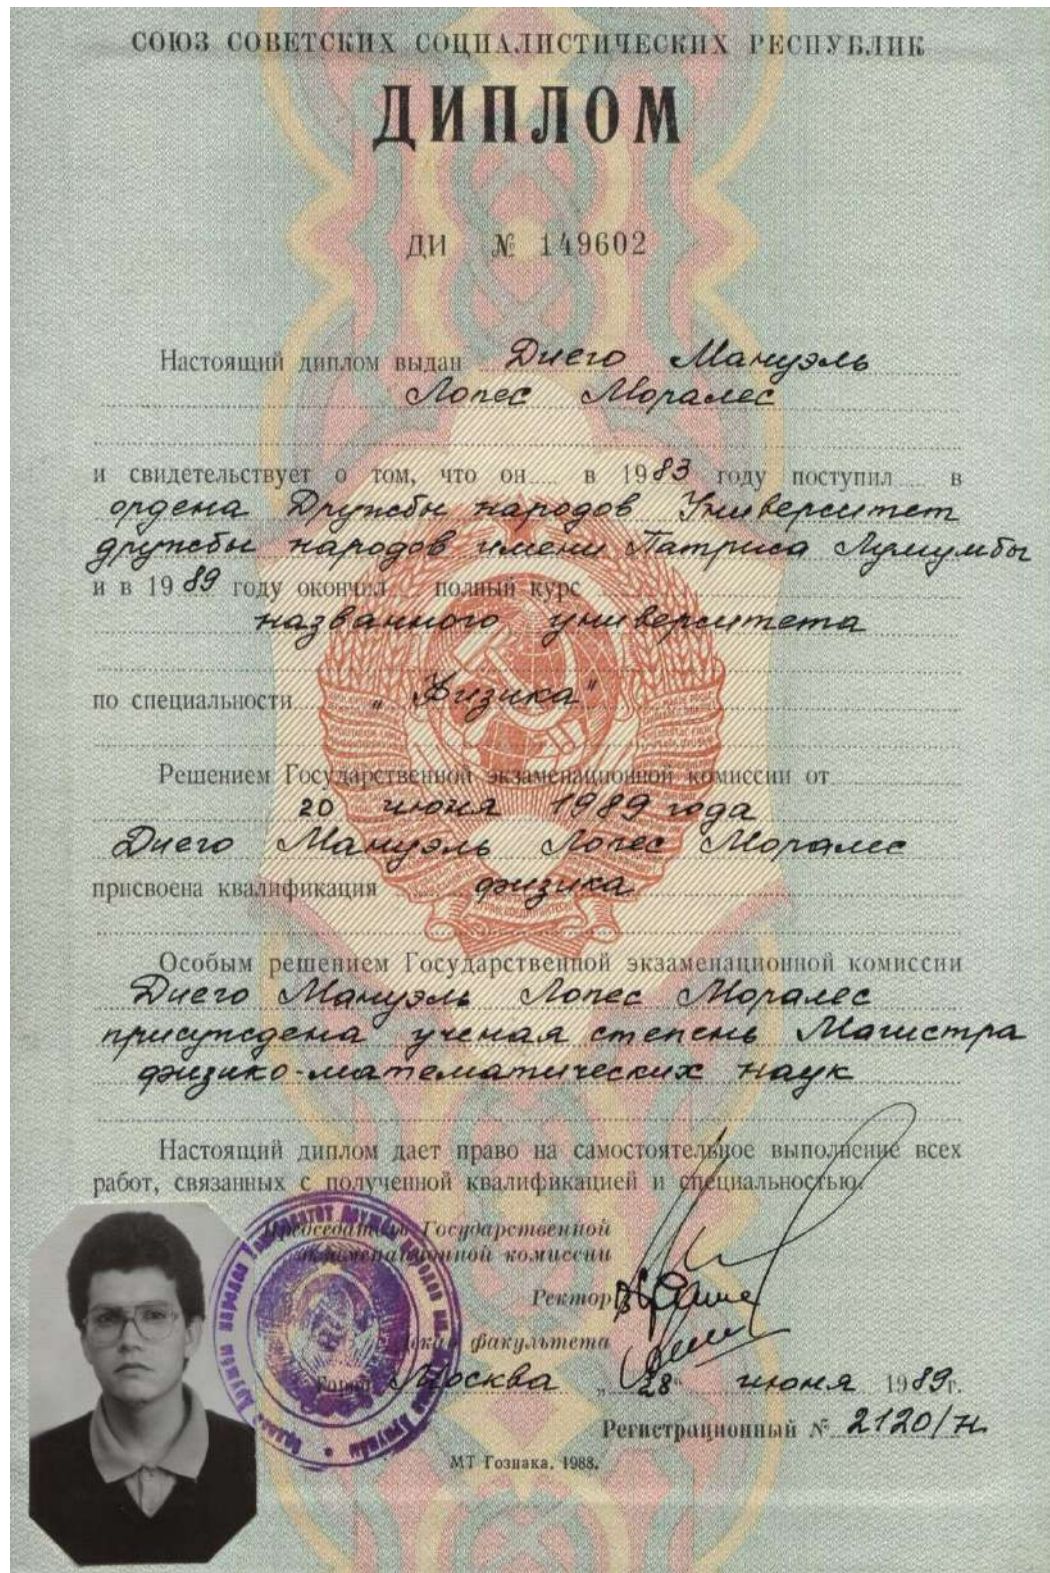 СОЮЗ СОВЕТСКИХ СОЦИАЛИСТИЧЕСКИХ РЕСПУБЛИК
ДИПЛОМ
ДИ № 149602
Настоящий диплом выдан Диего Мануэль
Лопес Моралес
и свидетельствует о том, что он в 1983 году поступил в
ордена Дружбы народов Университет
дружбы народов имени Патриса Лумумбы
и в 1989 году окончил полный курс
названного университета
по специальности „Физика"
Решением Государственной экзаменационной комиссии от
20 июня 1989 года
Диего Мануэль Лопес Моралес
присвоена квалификация физика
Особым решением Государственной экзаменационной комиссии
Диего Мануэль Лопес Моралес
присуждена ученая степень Магистра
физико-математических наук
Настоящий диплом дает право на самостоятельное выполнение всех
работ, связанных с полученной квалификацией и специальностью.
Председатель Государственной
экзаменационной комиссии
Ректор
Декан факультета
Город Москва „28" июня 1989г.
Регистрационный № 2120/н
МТ Гознака. 1988.